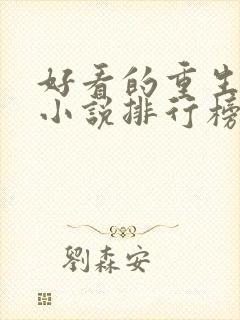 好看的重生
小说排行榜
劉森安